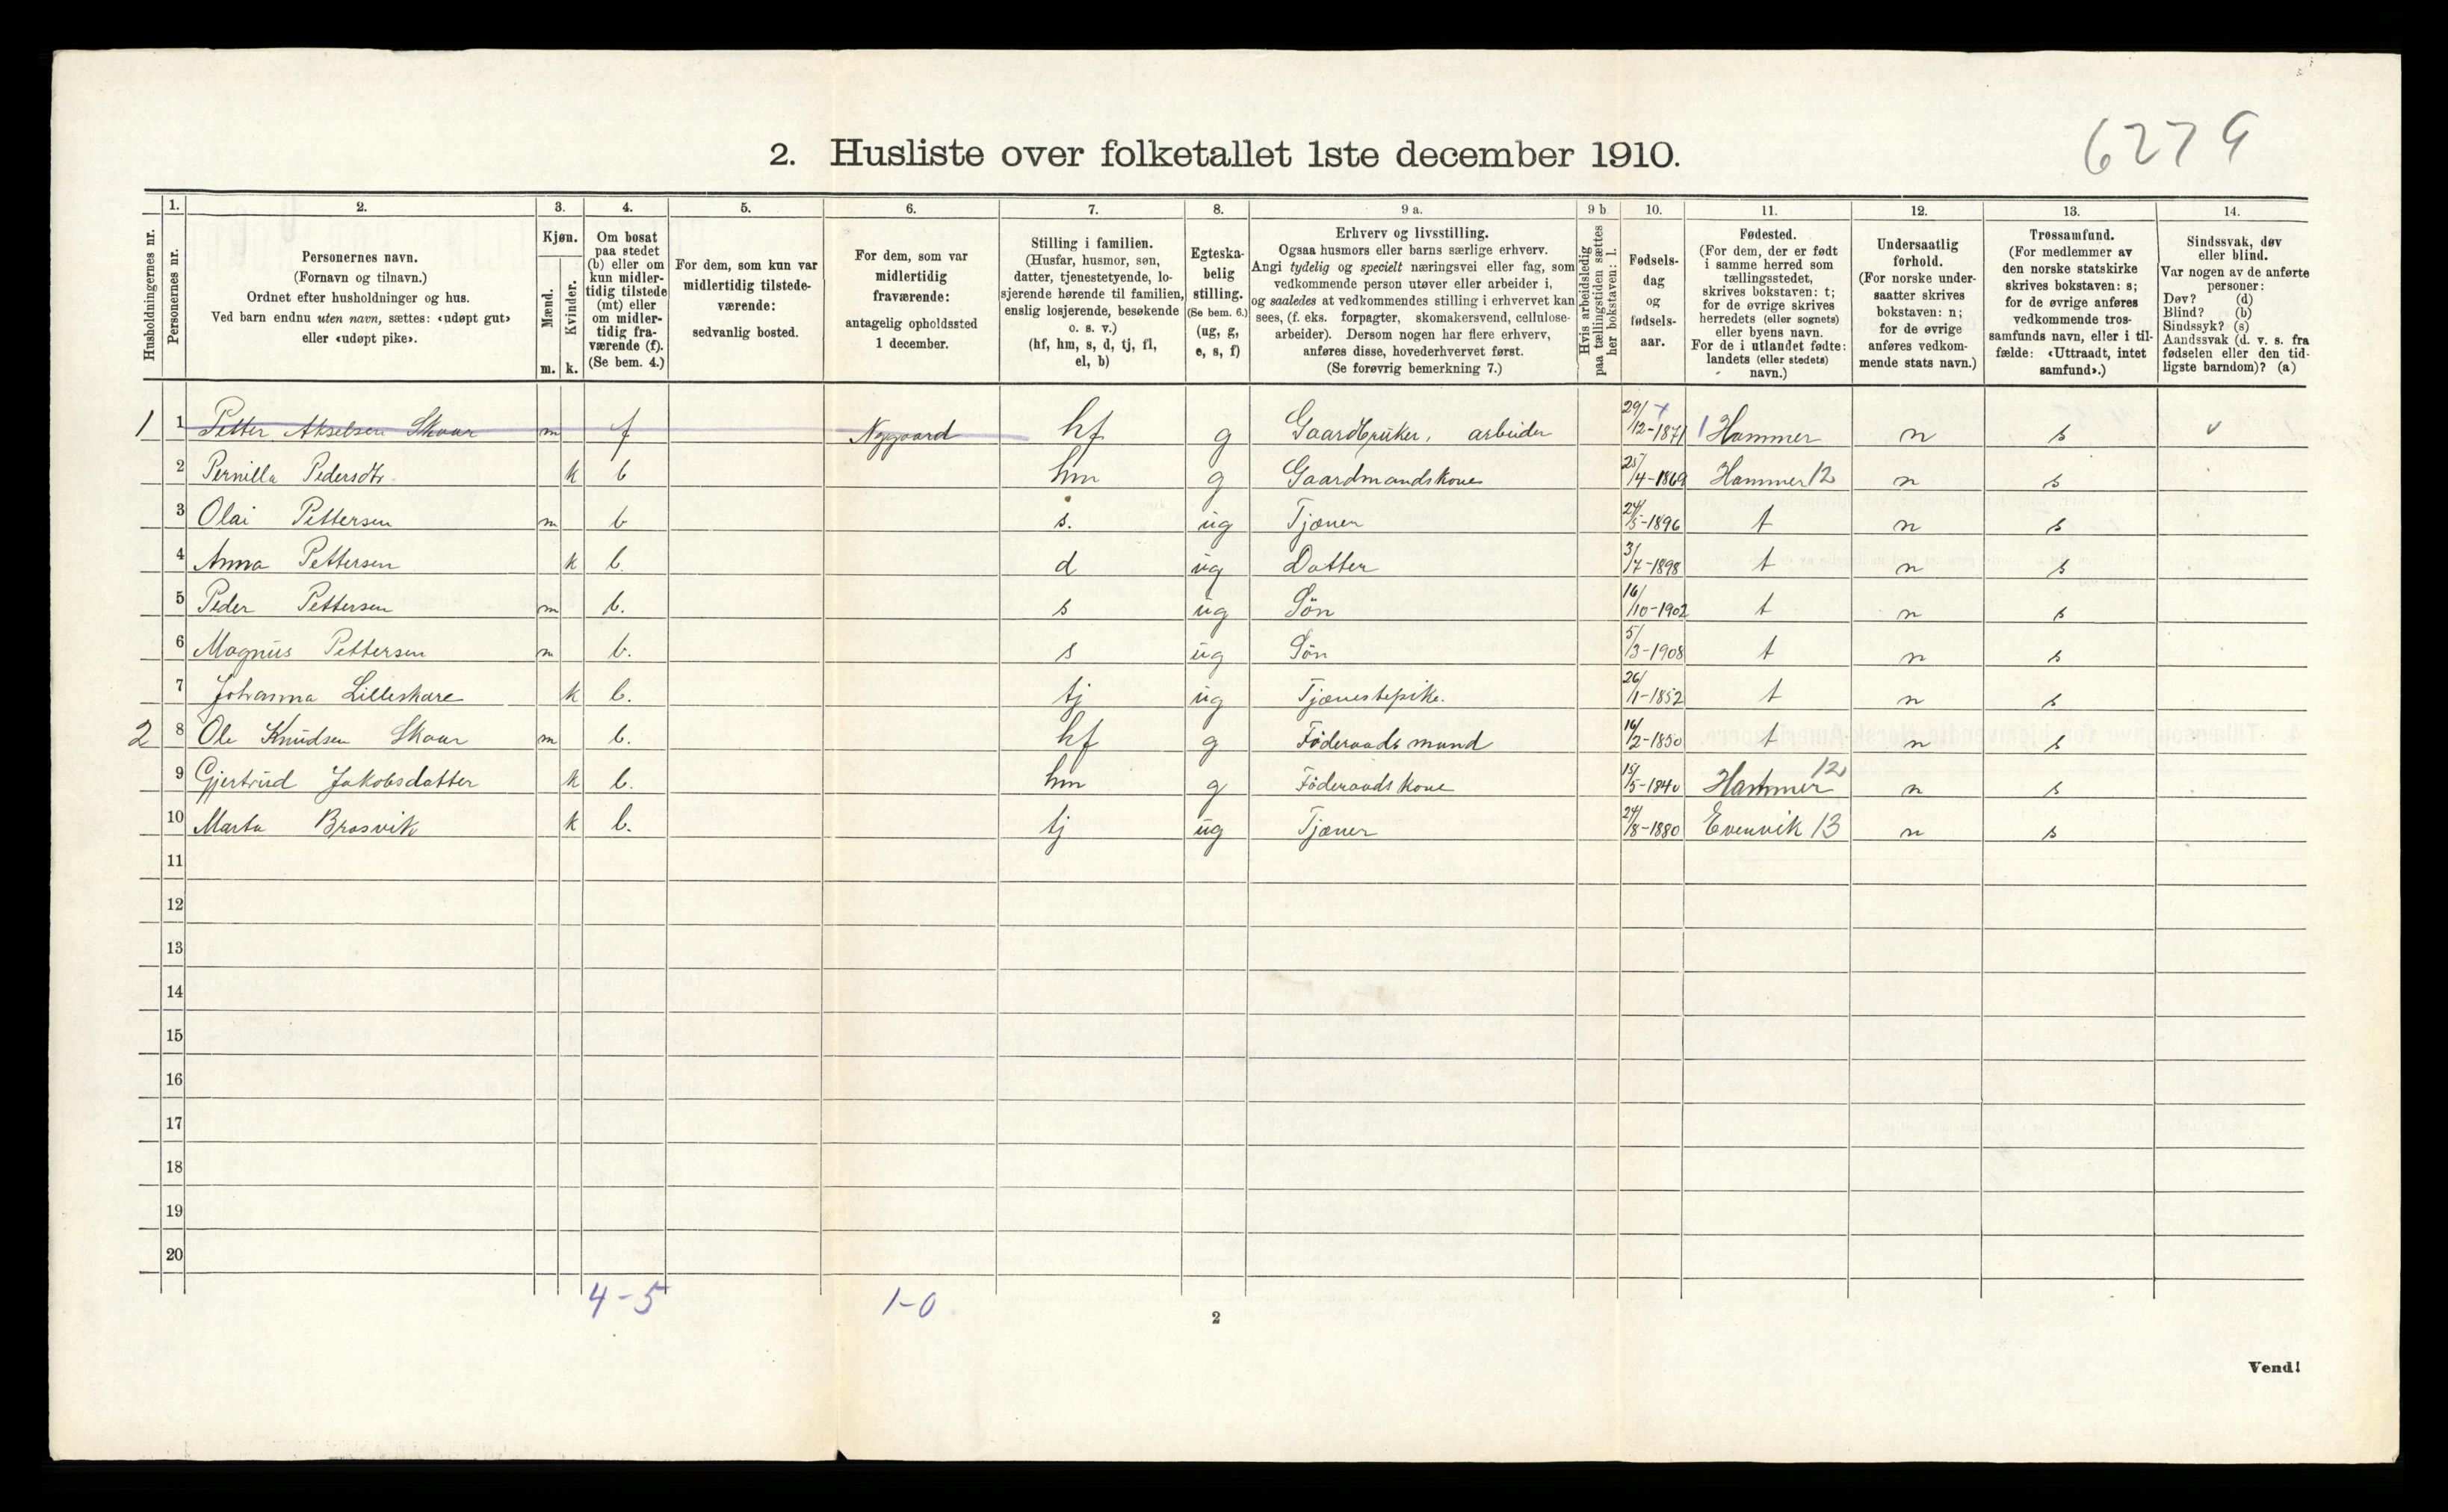 6279
2. Husliste over folketallet 1ste december 1910.
Husholdningernes nr.
1.
Personernes nr.
2.
Personernes navn.
(Fornavn og tilnavn.)
Ordnet efter husholdninger og hus.
Ved barn endnu uten navn, sættes: «udøpt gut»
eller «udøpt pike».
3.
Kjøn.
Mænd.
Kvinder.
m. k.
4.
Om bosat
paa stedet
(b) eller om
kun midler-
tidig tilstede
(mt) eller
om midler-
tidig fra-
værende (f).
(Se bem. 4.)
5.
For dem, som kun var
midlertidig tilstede-
værende:
sedvanlig bosted.
6.
For dem, som var
midlertidig
fraværende:
antagelig opholdssted
1 december.
7.
Stilling i familien.
(Husfar, husmor, søn,
datter, tjenestetyende, lo-
sjerende hørende til familien,
enslig losjerende, besøkende
o. s. v.)
(hf, hm, s, d, tj, fl,
el, b)
8.
Egteska-
belig
stilling.
(Se bem. 6.)
(ug, g,
e, s, f)
9 a.
Erhverv og livsstilling.
Ogsaa husmors eller barns særlige erhverv.
Angi tydelig og specielt næringsvei eller fag, som
vedkommende person utøver eller arbeider i,
og saaledes at vedkommendes stilling i erhvervet kan
sees, (f. eks. forpagter, skomakersvend, cellulose-
arbeider). Dersom nogen har flere erhverv,
anføres disse, hovederhvervet først.
(Se forøvrig bemerkning 7.)
9 b
Hvis arbeidsledig
paa tællingstiden sættes
her bokstaven: l.
10.
Fødsels-
dag
og
fødsels-
aar.
11.
Fødested.
(For dem, der er født
i samme herred som
tællingsstedet,
skrives bokstaven: t;
for de øvrige skrives
herredets (eller sognets)
eller byens navn.
For de i utlandet fødte:
landets (eller stedets)
navn.)
12.
Undersaatlig
forhold.
(For norske under-
saatter skrives
bokstaven: n;
for de øvrige
anføres vedkom-
mende stats navn.)
13.
Trossamfund.
(For medlemmer av
den norske statskirke
skrives bokstaven: s;
for de øvrige anføres
vedkommende tros-
samfunds navn, eller i til-
fælde: «Uttraadt, intet
samfund».)
14.
Sindssvak, døv
eller blind.
Var nogen av de anførte
personer:
Døv? (d)
Blind? (b)
Sindssyk? (s)
Aandssvak (d. v. s. fra
fødselen eller den tid-
ligste barndom)? (a)
1 1 Petter Akselsen Skaar m f Nygaard hf g Gaardbruker, arbeider 29/12-1871 Hammer n s
2 Pernilla Pedersdtr. k b hm g Gaardmandskone 25/4-1869 Hammer 12 n s
3 Olai Pettersen m b s. ug Tjæner 24/5-1896 t n s
4 Anna Pettersen k b. d ug Datter 3/7-1898 t n s
5 Peder Pettersen m b. s ug Søn 16/10-1902 t n s
6 Magnus Pettersen m b. s ug Søn 5/3-1908 t n s
7 Johanna Lilleskare k b. tj ug Tjænestepike. 26/1-1852 t n s
2 8 Ole Knudsen Skaar m b. hf g Föderaadsmand 16/2-1850 t n s
9 Gjertrud Jakobsdatter k b. hm g Föderaadskone 15/5-1840 Hammer 12 n s
10 Marta Brosvik k b. tj ug Tjæner 24/8-1880 Evenvik 13 n s
11
12
13
14
15
16
17
18
19
20
4-5 1-0
2
Vend!